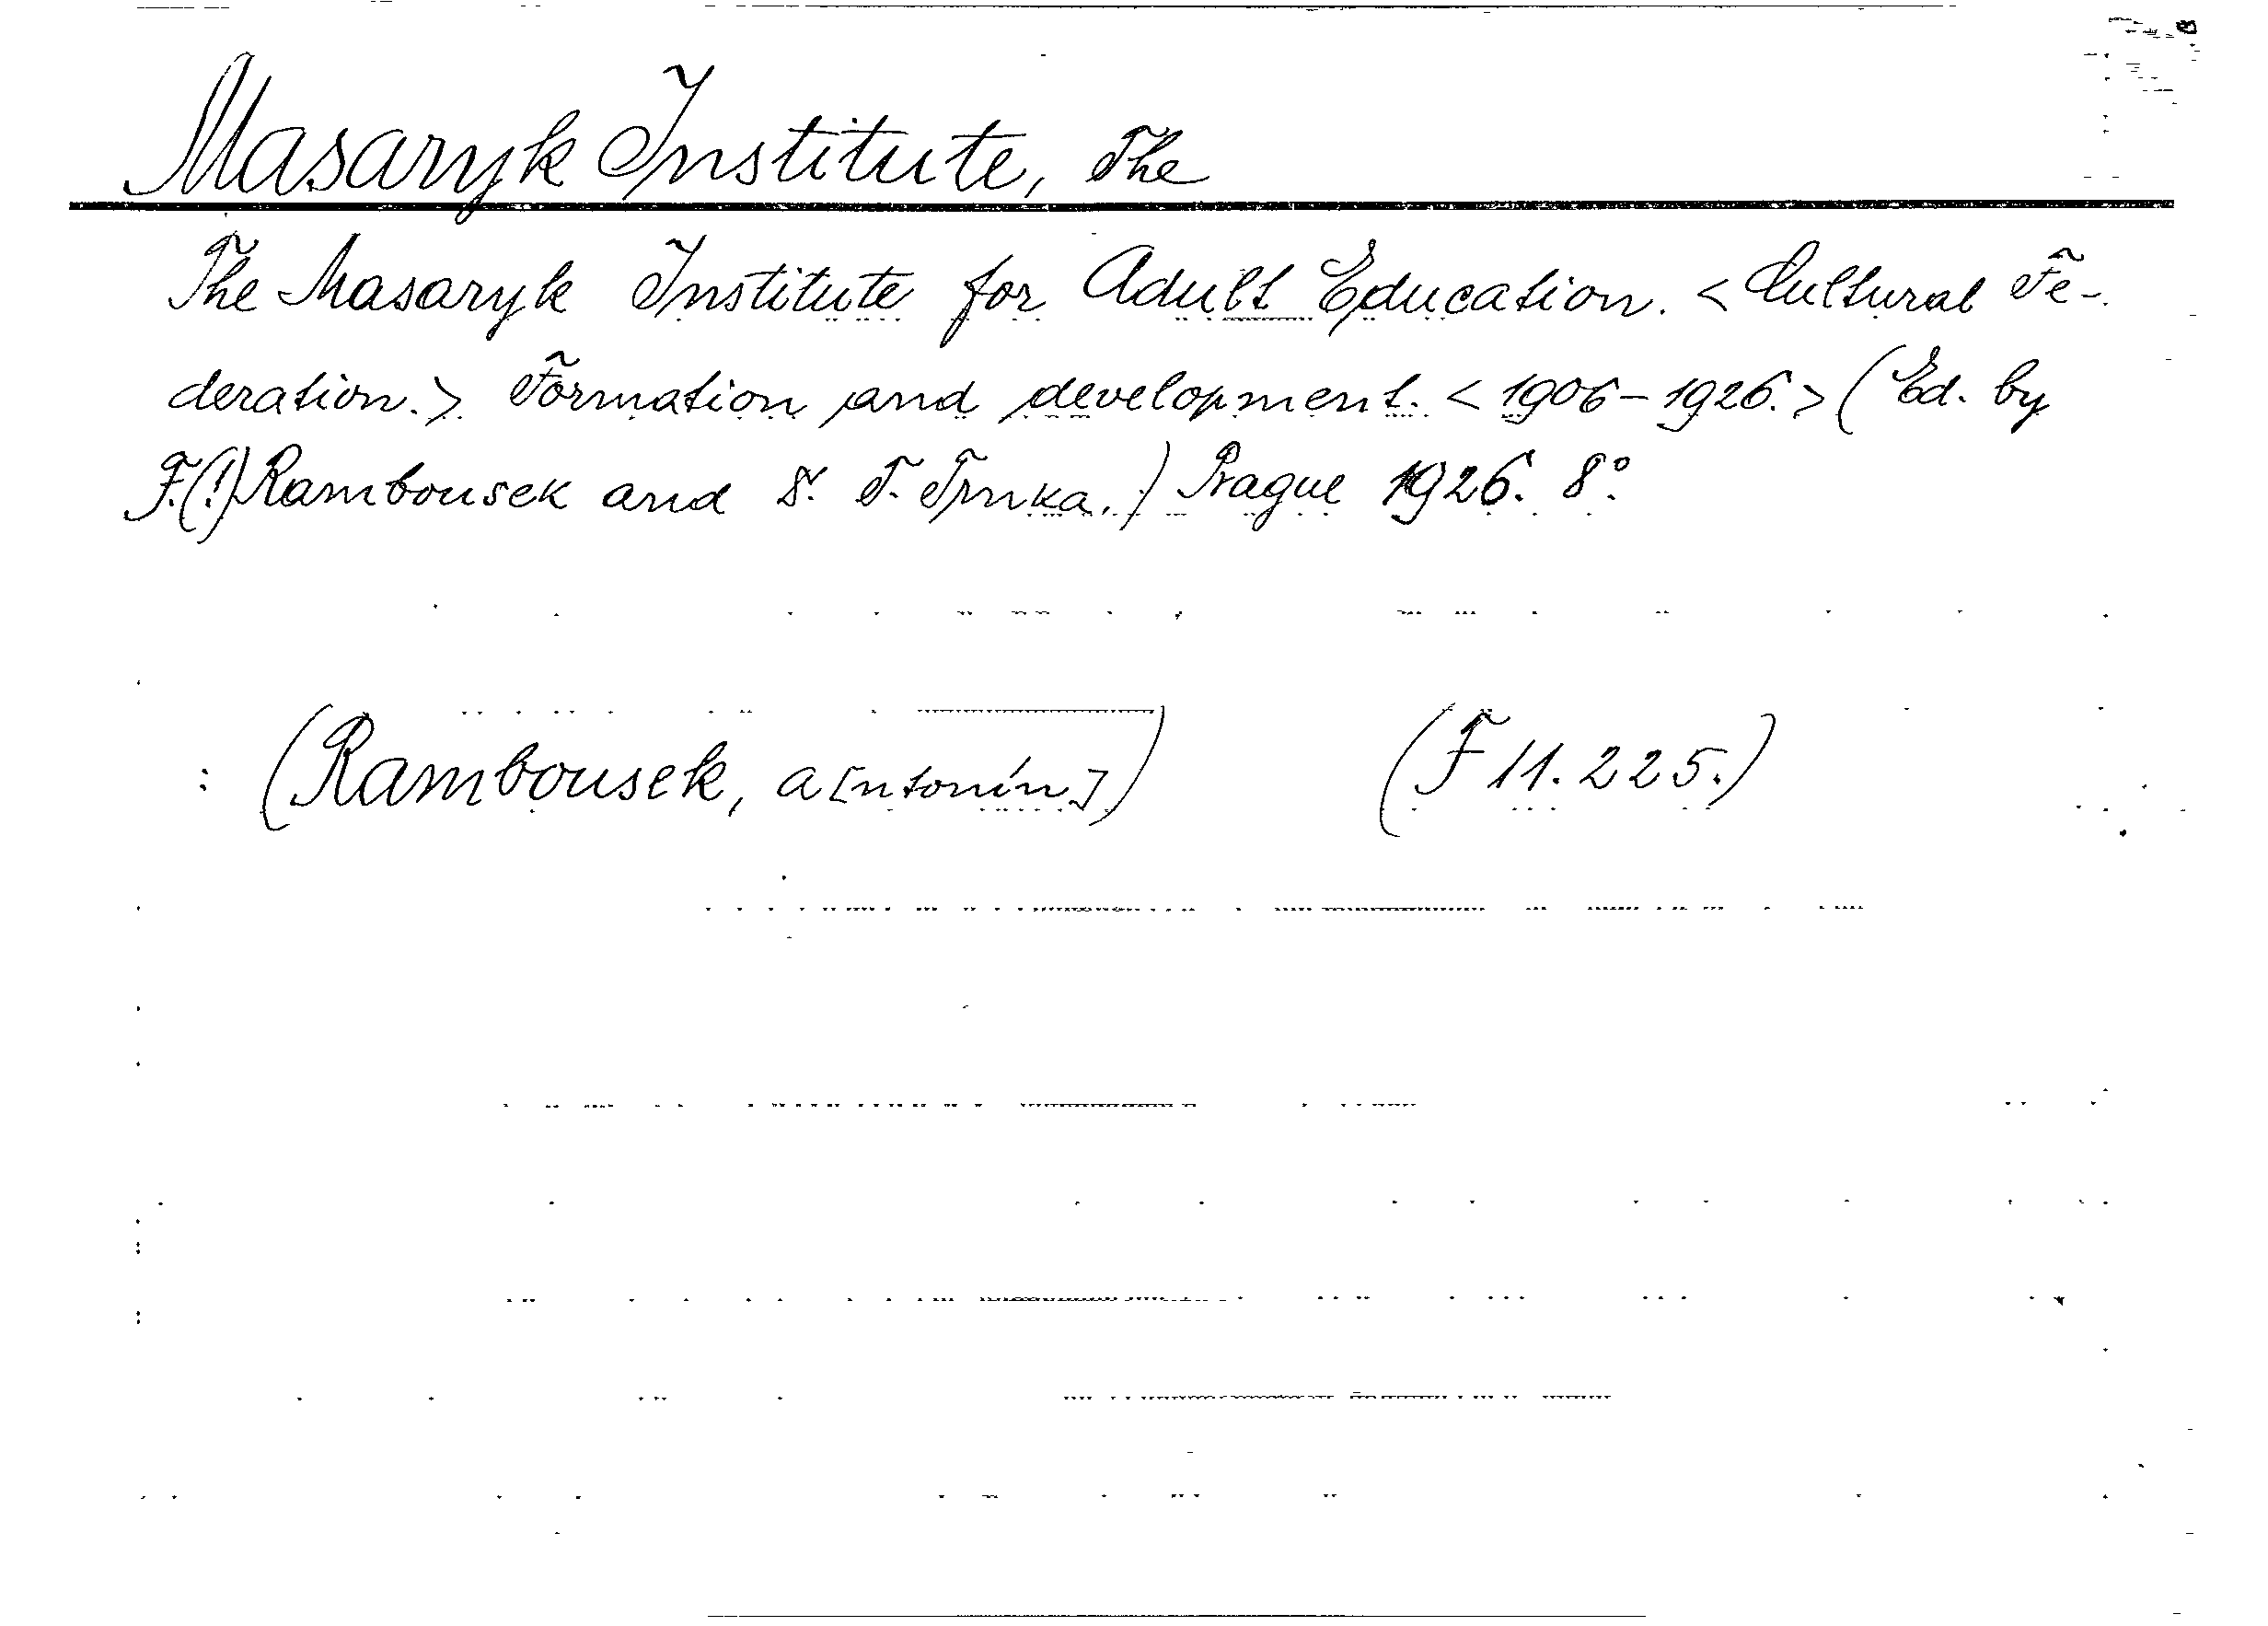 Masaryk Institute, The
The Masaryk Institute for Adult Education. < Cultural Fe-
deration.> Formation and development. < 1906-1926.> (Ed. by
F.(!) Rambousek and T. Trnka.) Prague 1926. 8°.
: (Rambousek, A[ntonín]) (F 11.225.)